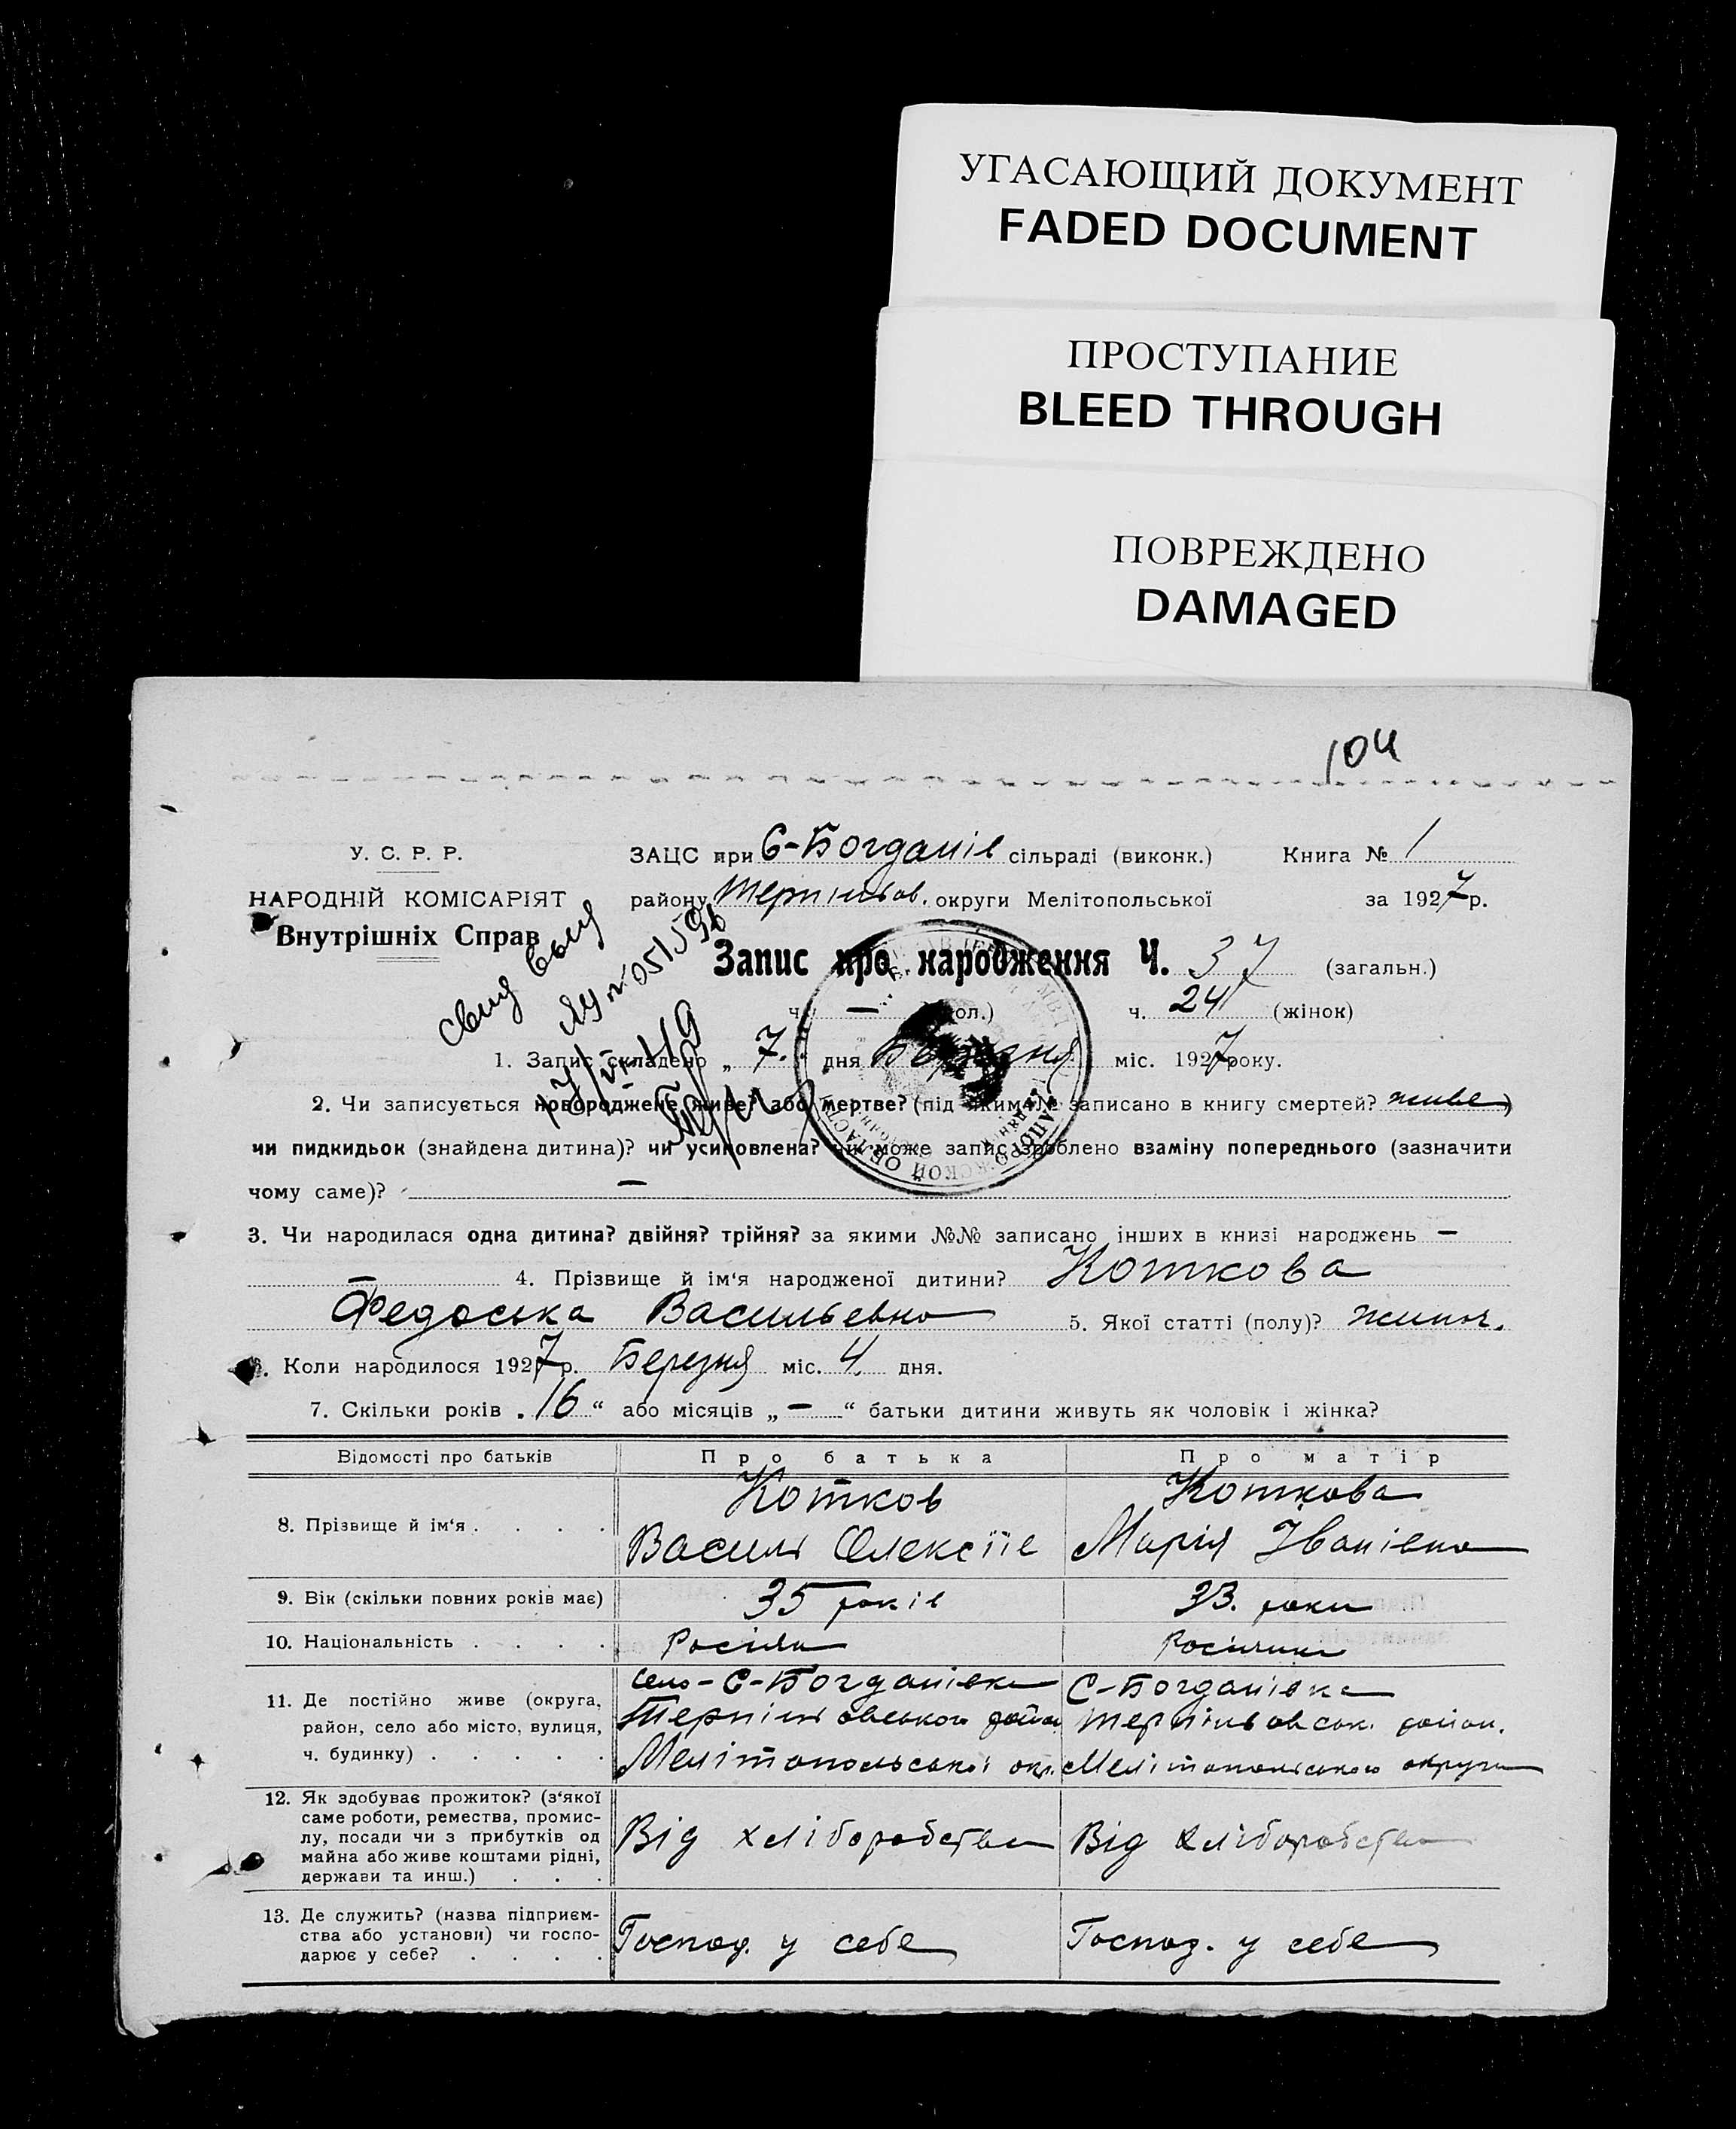 УГАСАЮЩИЙ ДОКУМЕНТ
FADED DOCUMENT
ПРОСТУПАНИЕ
BLEED THROUGH
ПОВРЕЖДЕНО
DAMAGED
104
У. С. Р. Р.
НАРОДНІЙ КОМІСАРІЯТ
Внутрішніх Справ
ЗАЦС при С-Богданів сільраді (виконк.) Книга № 1
району Терпіньов. округи Мелітопольської за 1927 р.
Запис про народження Ч. 37 (загальн.)
ч. — ч. 24 (жінок)
свид выд
ЯЦ № 051596
1. Запис складено „ 7. " дня Березня міс. 1927 року.
2. Чи записується новороджене живе? або мертве? (під яким № записано в книгу смертей? живе)
чи пидкидьок (знайдена дитина)? чи усиновлена? чи може запис зроблено взаміну попереднього (зазначити
чому саме)? —
3. Чи народилася одна дитина? двійня? трійня? за якими №№ записано інших в книзі народжень —
— 4. Прізвище й ім'я народженої дитини? Коткова
Федоська Васильевна 5. Якої статті (полу)? жиноч.
6. Коли народилося 1927 р. Березня міс. 4 дня.
7. Скільки років „ 16 “ або місяців „ — “ батьки дитини живуть як чоловік і жінка?
Відомості про батьків Про батька Про матір
8. Прізвище й ім'я . . . . Котков Василь Олексіїв Коткова Марія Іванівна
9. Вік (скільки повних років має) 35 років 33. роки
10. Національність . . . . Росіян Росіянин
11. Де постійно живе (округа, село-С-Богданівка С-Богданівка
район, село або місто, вулиця, Терпіньовського район Терпіньовськ. район.
ч. будинку) . . . . . Мелітопольської окр. Мелітопольського округи
12. Як здобуває прожиток? (з'якої
саме роботи, ремества, промис-
лу, посади чи з прибутків од Від хліборобства Від хліборобства
майна або живе коштами рідні,
держави та инш.) . . .
13. Де служить? (назва підприєм-
ства або установи) чи госпо- Господ. у себе Господ. у себе
дарює у себе? . . . .